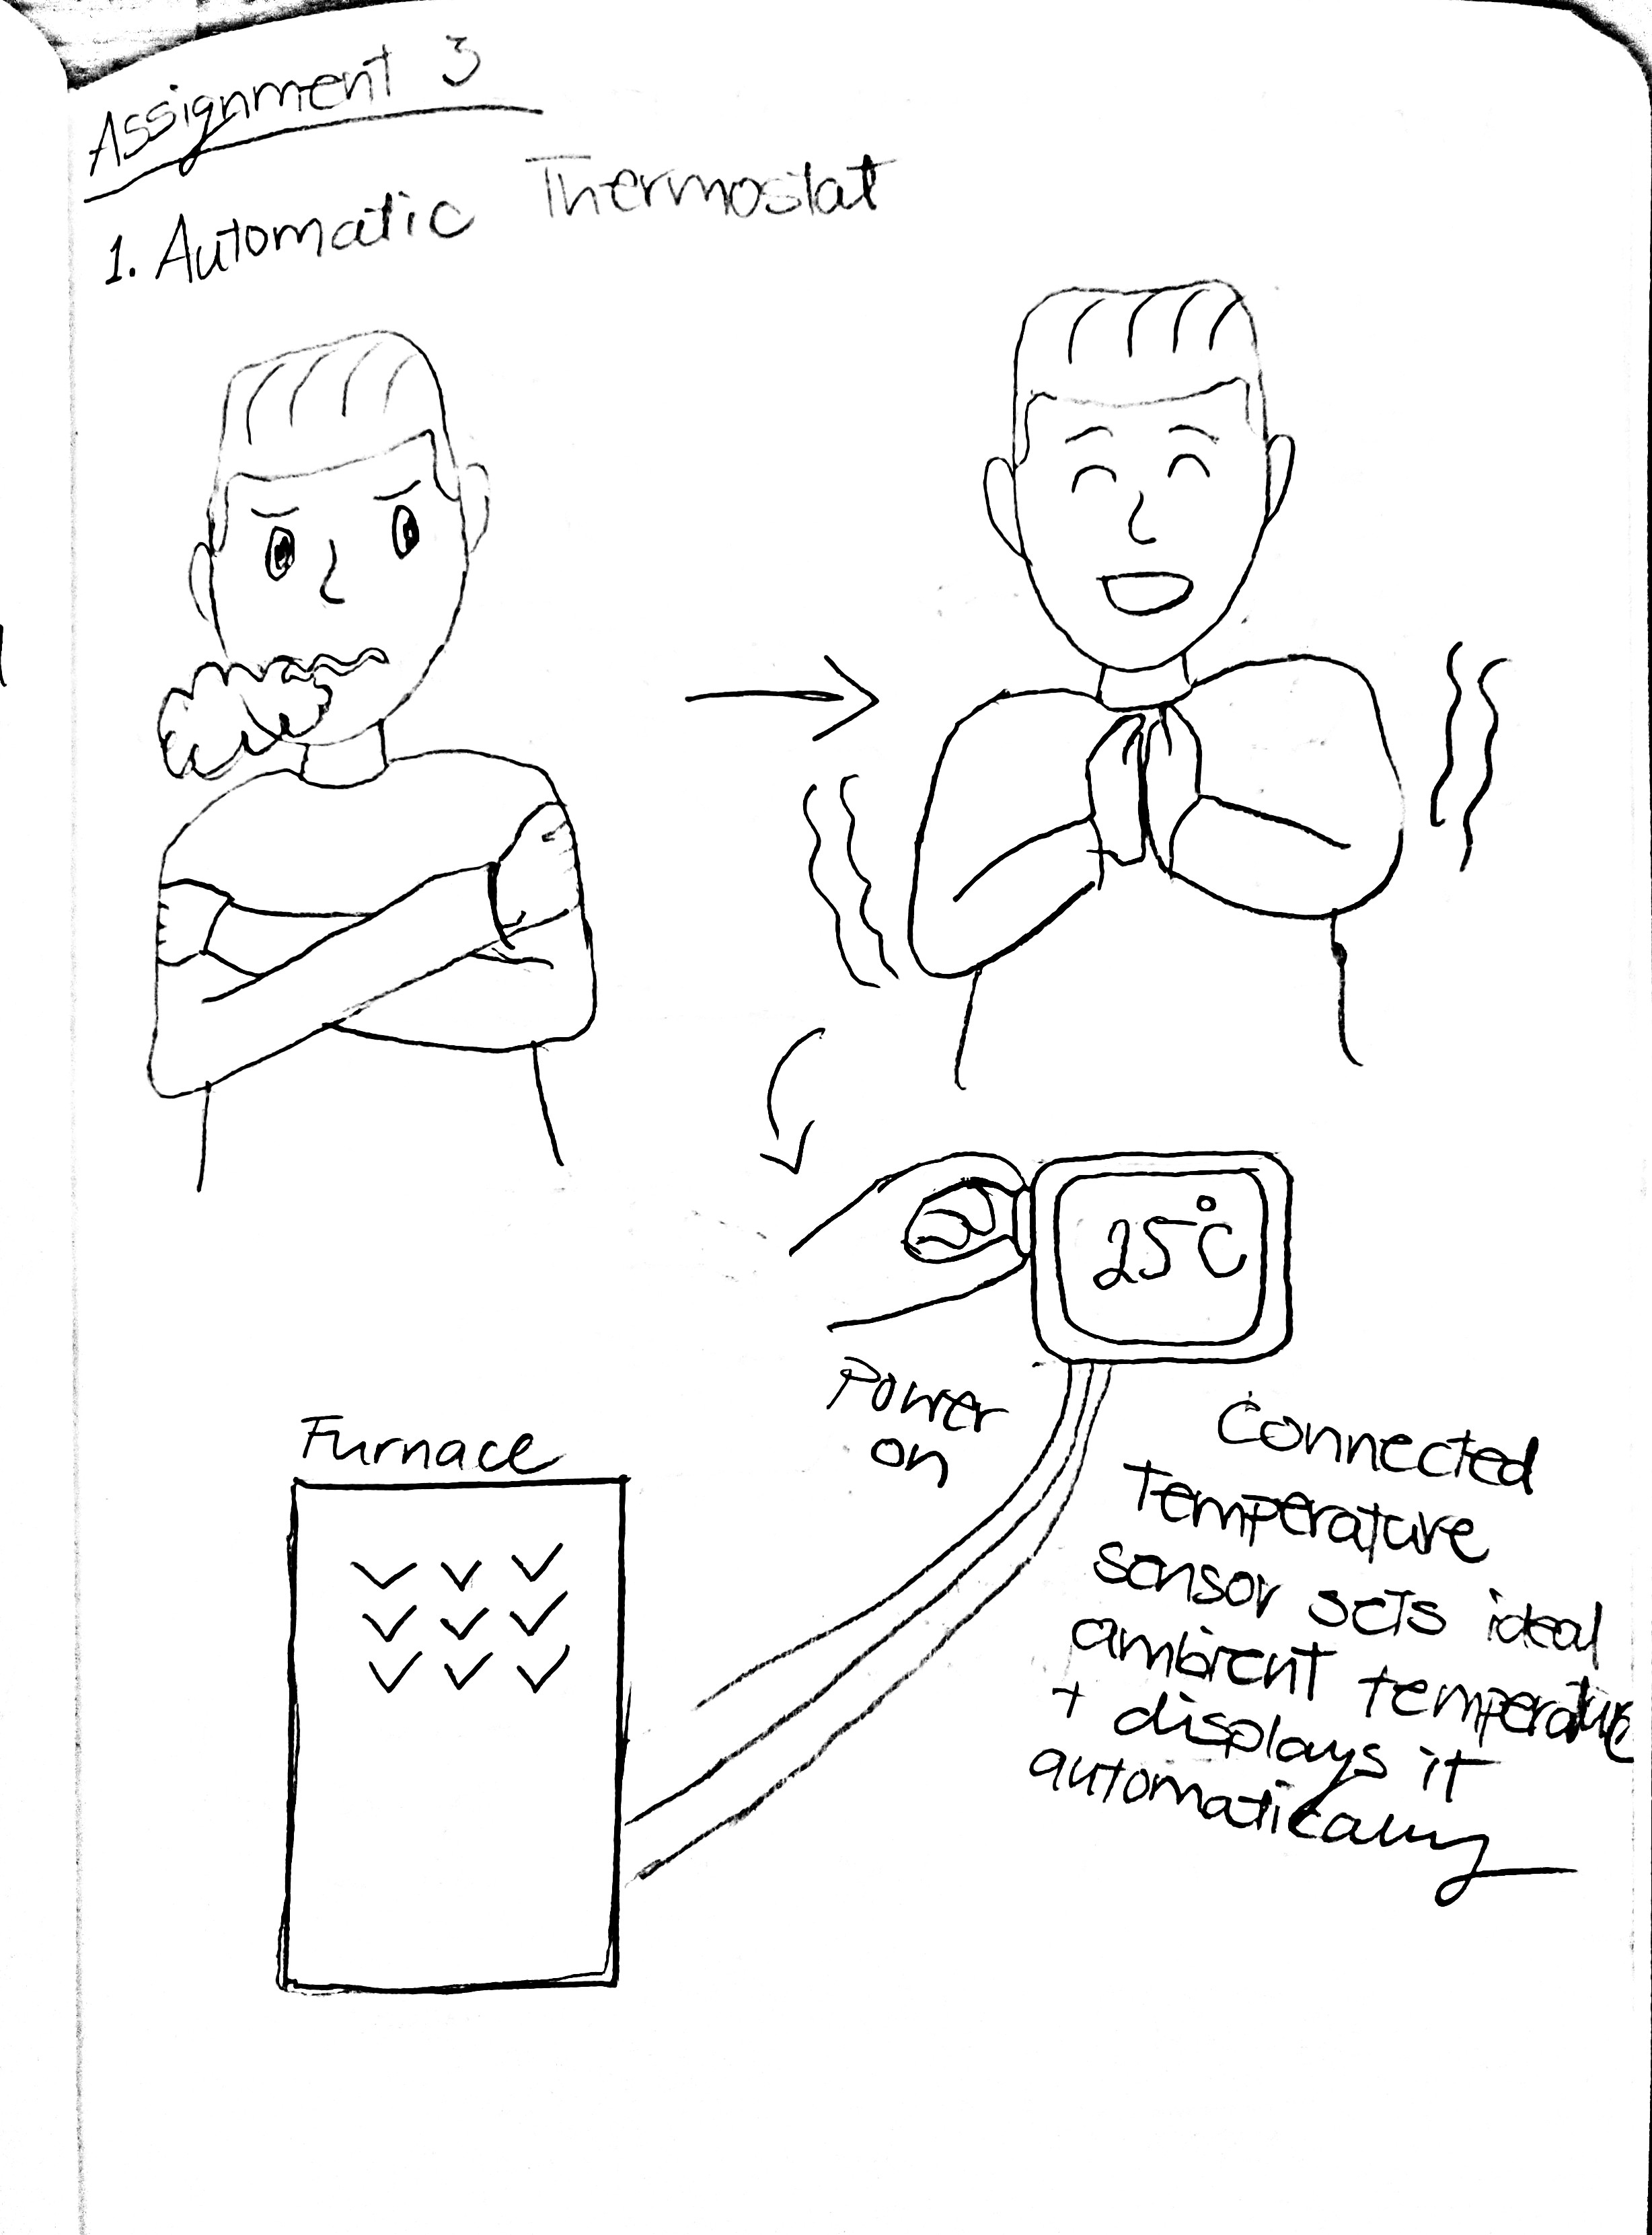 Assignment 3
1. Automatic Thermostat
25°C
Power
on
Furnace
Connected
Temperature
sensor sets ideal
ambient temperature
+ displays it
automatically